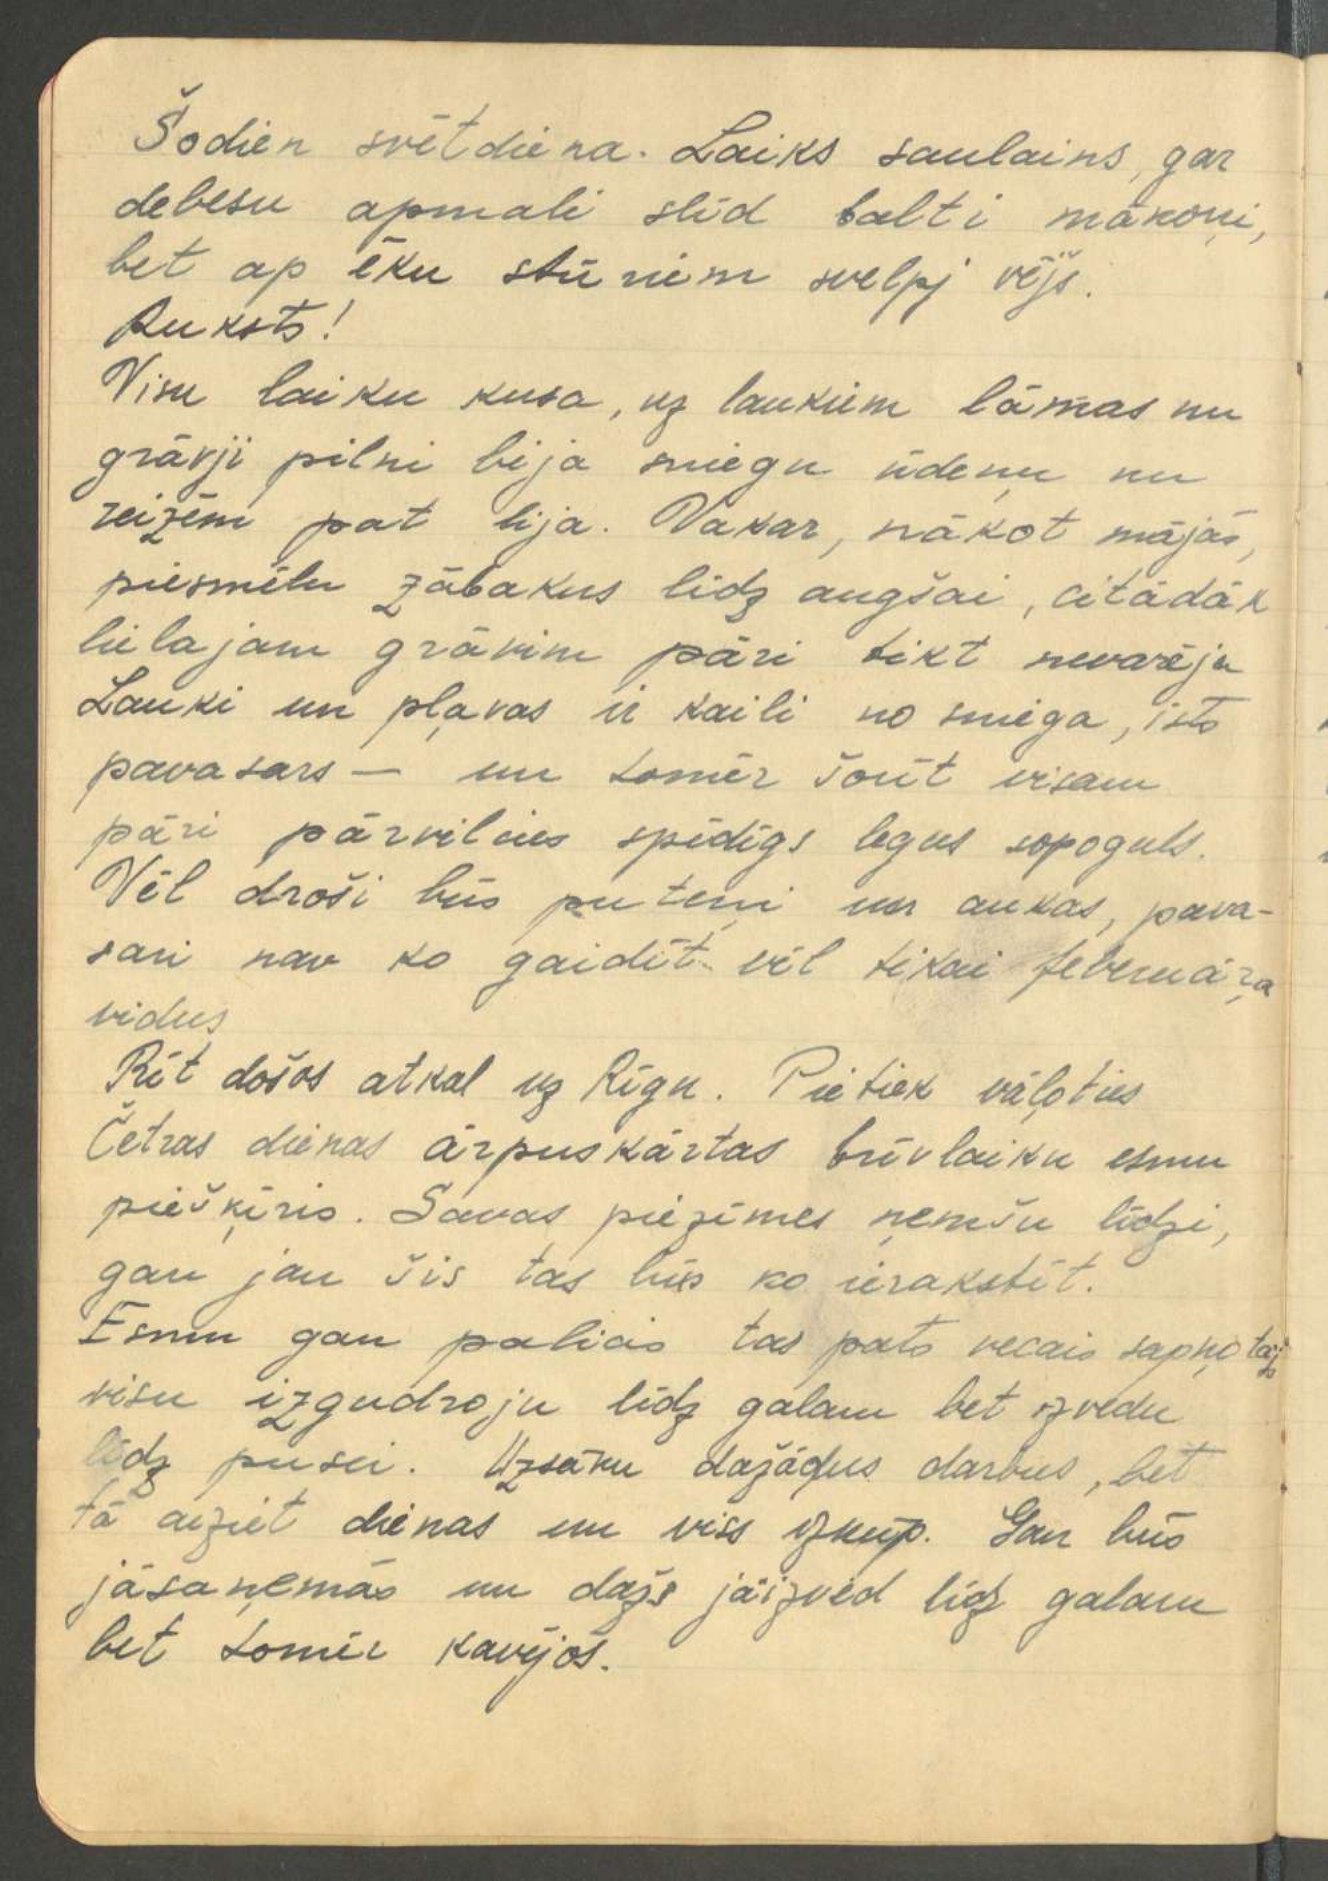 Šodien svētdiena. Laiks saulains, gar
debesu apmali slīd balti mākoņi,
bet ap ēku stūriem svelpj vējš.
Auksts!
Visu laiku kusa, uz laukiem lāmas un
grāvji pilni bija sniegu ūdeņu un
reizēm pat lija. Vakar, nākot mājās,
piesmēlu zābakus līdz augšai, citādāk
lielajam grāvim pāri tikt nevarēju
Lauki un pļavas ir kaili no sniega, īsts
pavasars — un tomēr šorīt visam
pāri pārvilcies spīdīgs ledus sopoguls.
Vēl droši būs puteņi un aukas, pava-
sari nav ko gaidīt vēl tikai februāŗa
vidus
Rīt došos atkal uz Rīgu. Pietiek vāļoties
Četras dienas ārpuskārtas brīvlaiku esmu
piešķīris. Savas piezīmes ņemšu līdzi,
gan jau šis tas būs ko ierakstīt.
Esmu gan palicis tas pats vecais sapņotājs
visu izgudroju līdz galam bet izvedu
līdz pusei. Uzsāku dažādus darbus, bet
tā aiziet dienas un viss izkūp. Gan būs
jāsaņemās un dažs jāizved līdz galam
bet tomēr kavējos.